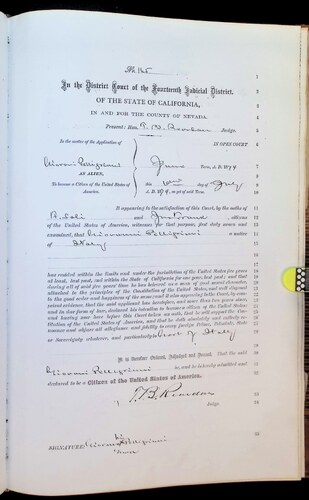 No 165
1
In the District Court of the Fourteenth Judicial District,
2
OF THE STATE OF CALIFORNIA,
3
IN AND FOR THE COUNTY OF NEVADA.
4
Present: Hon. T. B. Reardan Judge.
5
In the matter of the Application of
6
IN OPEN COURT
Giovanni Pelligrini
7
June Term, A. D. 1874
AN ALIEN,
8
To become a Citizen of the United States of
9
this day of July
America.
10
A. D. 1874, as yet of said Term.
11
It appearing to the satisfaction of this Court, by the oaths of
12
and citizens
13
of the United States of America, witnesses for that purpose, first duly sworn and
14
examined, that Giovanni Pelligrini a native
15
of Italy
16
17
has resided within the limits and under the jurisdiction of the United States five years
at least, last past, and within the State of California for one year, last past; and that
during all of said five years' time he has behaved as a man of good moral character,
attached to the principles of the Constitution of the United States, and well disposed
to the good order and happiness of the same; and it also appearing to the Court, by com-
petent evidence, that the said applicant has heretofore, and more than two years since,
and in due form of law, declared his intention to become a citizen of the United States;
and having now here before this Court taken an oath, that he will support the Con-
stitution of the United States of America, and that he doth absolutely and entirely re-
nounce and abjure all allegiance and fidelity to every foreign Prince, Potentate, State
or Sovereignty whatever, and particularly to of Italy
It is therefore Ordered, Adjudged and Decreed, That the said
Giovanni Pelligrini be, and he is hereby admitted and
declared to be a Citizen of the United States of America.
T. B. Reardan
Judge
SIGNATURE: Giovanni his Pelligrini
mark